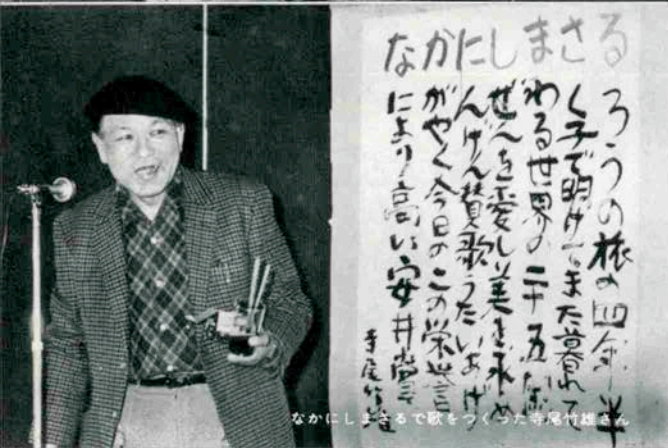 なかにしまさる
ろうの旅の四年半
く子で明けてまた暮れて
わる世界の二十五
ぜんを愛し美を求め
んげん賛歌うたいあげ
がやく今日のこの栄誉
により高い安井賞
寺尾竹雄
なかにしまさるで歌をつくった寺尾竹雄さん